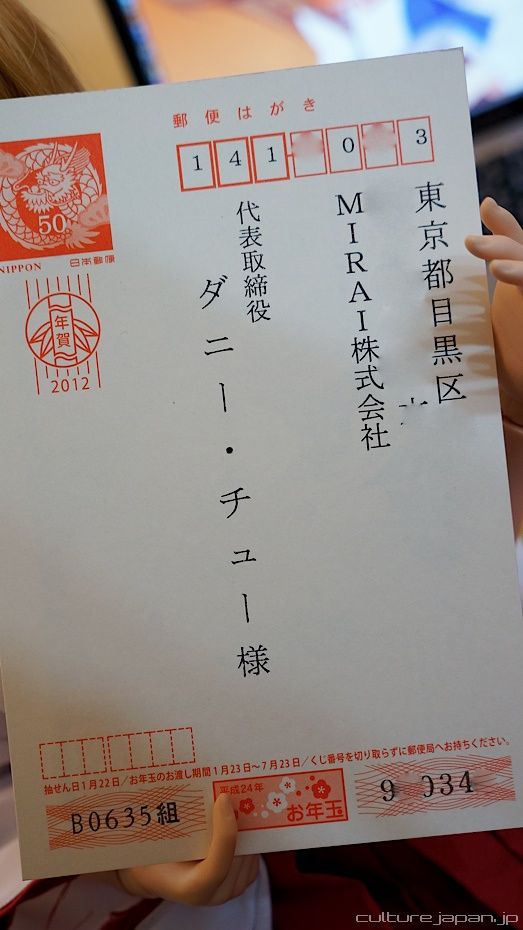 郵便はがき
141-003
50
NIPPON 日本郵便
年賀
2012
東京都目黒区
MIRAI株式会社
代表取締役
ダニー・チュー様
抽せん日1月22日/お年玉のお渡し期間1月23日〜7月23日/くじ番号を切り取らずに郵便局へお持ちください。
B0635組
平成24年
お年玉
9 034
culturejapan.jp